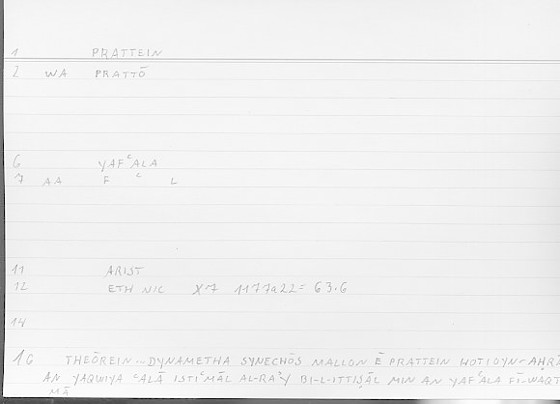 1 PRATTEIN
2 WA PRATTŌ
6 YAFʿALA
7 AA F ʿ L
11 ARIST
12 ETH NIC X 7 1177a22 = 63.6
14
16 THEŌREIN ~ DYNAMETHA SYNECHŌS MALLON Ē PRATTEIN HOTIOYN ~ AḤRĀ
AN YAQWIYA ʿALĀ ISTIʿMĀL AL-RAʾY BI-L-ITTIṢĀL MIN AN YAFʿALA FĪ-WAQT
MĀ